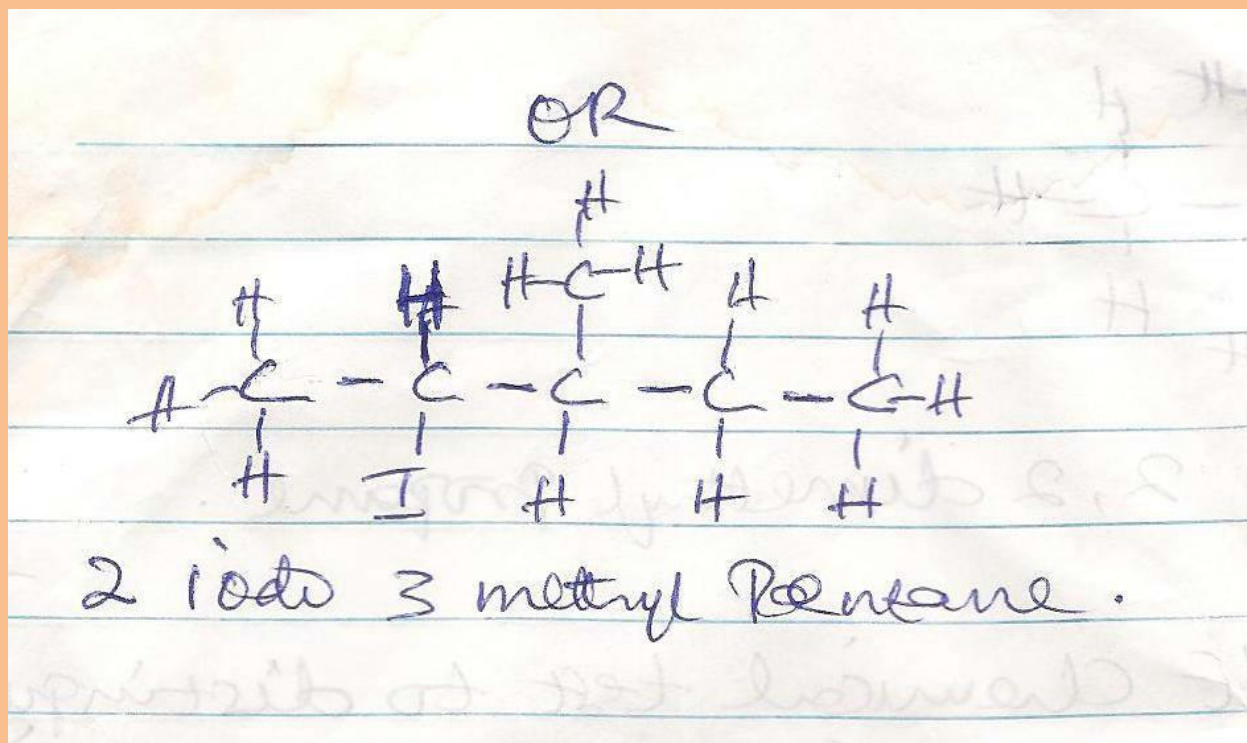 OR
H
H H H-C-H H H
H-C-C-C-C-C-H
H I H H H
2 iodo 3 methyl Pentane.